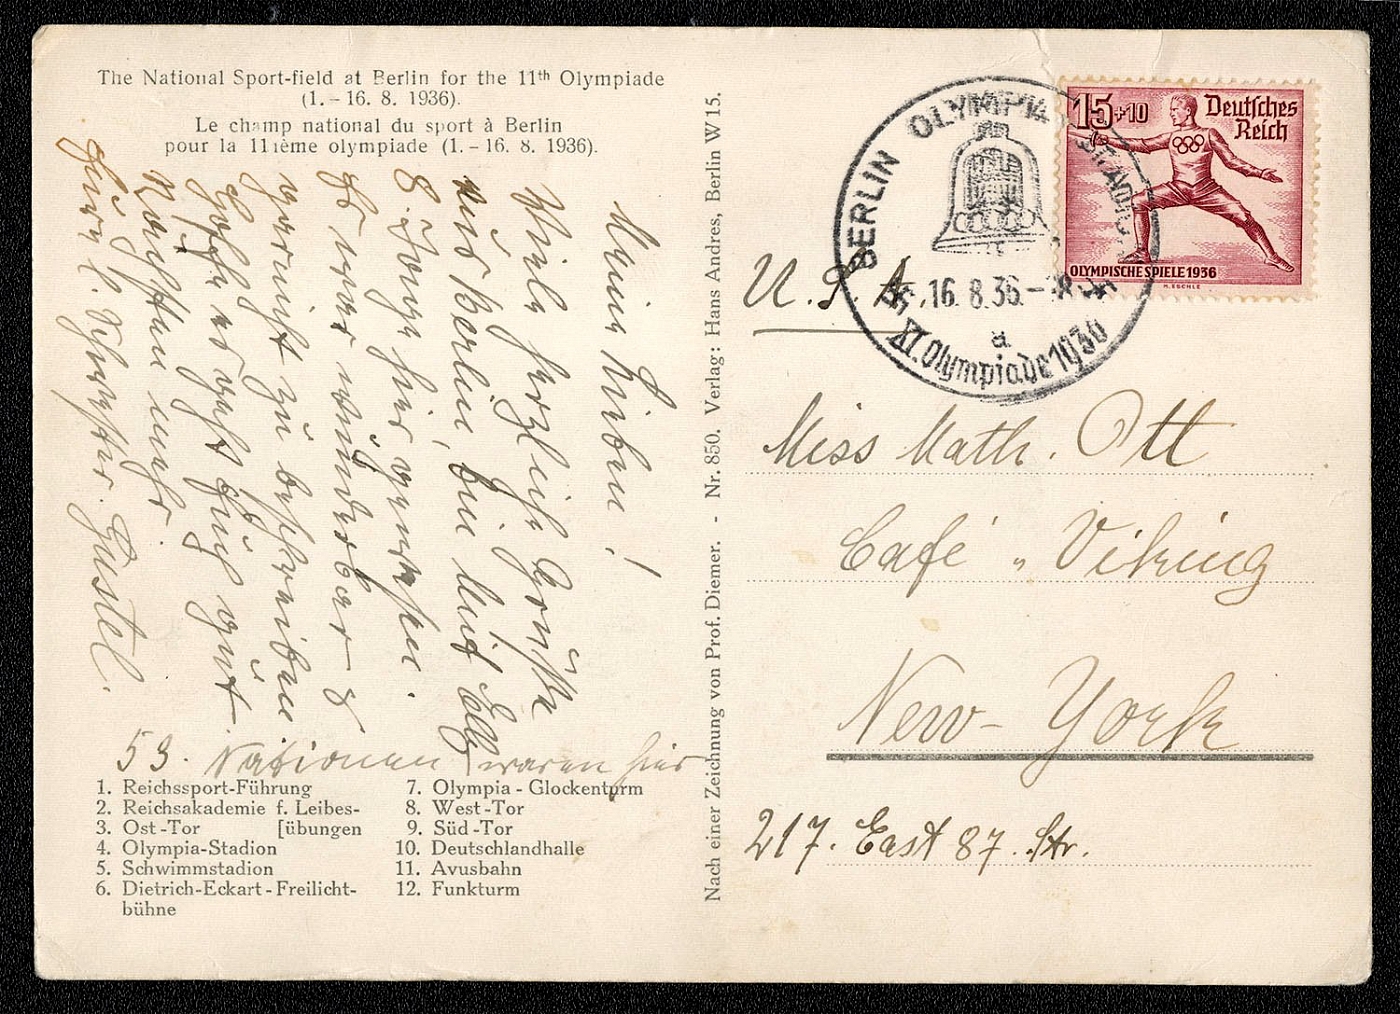 The National Sport-field at Berlin for the 11th Olympiade
(1.-16. 8. 1936).
Le champ national du sport à Berlin
pour la 11ième olympiade (1.-16. 8. 1936).
Meine Lieben!
Viele herzliche Grüße
aus Berlin, bin mit Elly
8 Tage hier gewesen.
Es war wunderbar &
garnicht zu beschreiben
Hoffe es geht Euch gut
mehr.
Eure l. Schwester Gustel.
53. Nationen waren hier
1. Reichssport-Führung
2. Reichsakademie f. Leibes-
3. Ost-Tor [übungen
4. Olympia-Stadion
5. Schwimmstadion
6. Dietrich-Eckart-Freilicht-
bühne
7. Olympia-Glockenturm
8. West-Tor
9. Süd-Tor
10. Deutschlandhalle
11. Avusbahn
12. Funkturm
Nach einer Zeichnung von Prof. Diemer. - Nr. 850. Verlag: Hans Andres, Berlin W 15.
BERLIN OLYMPIA-STADION
16.8.36.-
a
XI. Olympiade 1936
15+10 Deutsches
Reich
OLYMPISCHE SPIELE 1936
M. ESCHLE
U. S. A.
Miss Math. Ott
Café „Viking
New-York
217. East 87. Str.